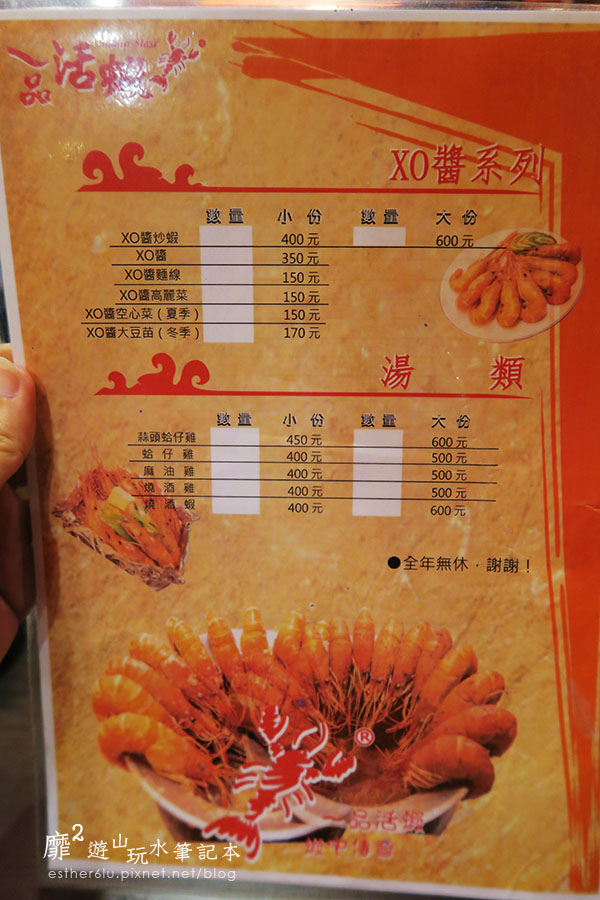 一品活蝦
XO醬系列
數量 小份 數量 大份
XO醬炒蝦 400元 600元
XO醬 350元
XO醬麵線 150元
XO醬高麗菜 150元
XO醬空心菜(夏季) 150元
XO醬大豆苗(冬季) 170元
湯類
數量 小份 數量 大份
蒜頭蛤仔雞 450元 600元
蛤仔雞 400元 500元
麻油雞 400元 500元
燒酒雞 400元 500元
燒酒蝦 400元 600元
●全年無休，謝謝！
®
一品活蝦
靡2遊山玩水筆記本
esther61u.pixnet.net/blog